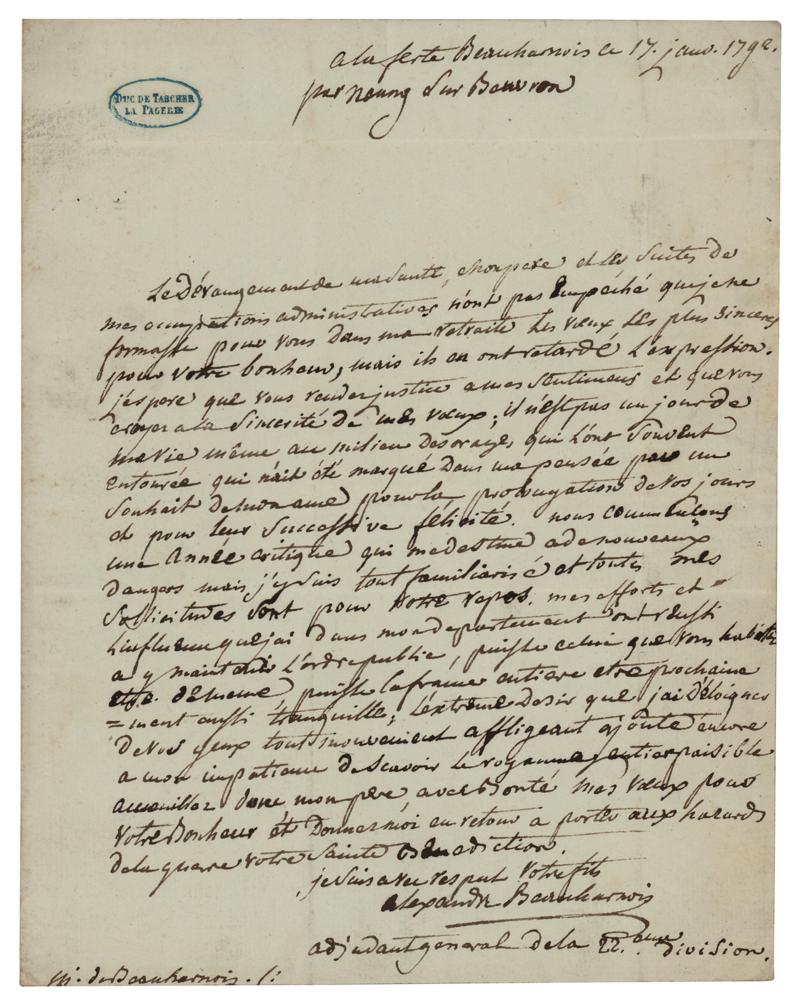 a la ferte Beauharnois ce 17. janv. 1792.
par neung Sur Beuvron
DUC DE TASCHER
LA PAGERIE
Le Dérangement de ma Santé, mon pere et les Suites de
mes occupations administratives n'ont pas Empéché que je ne
formasse pour vous Dans ma retraite Les vœux Les plus Sinceres
pour votre bonheur, mais ils en ont retardé L'expression.
j'espere que vous rendez justice a mes Sentimens et que vous
croyez a la Sincerité de mes vœux; il n'est pas un jour de
ma vie même au milieu Des orages qui L'ont Souvent
entourée qui n'ait été marqué Dans ma pensée par un
Souhait de mon ame pour la prolongation De vos jours
et pour leur Successive félicité. nous commençons
une Année critique qui me destine a de nouveaux
Dangers mais j'y Suis tout familiarisé et toutes mes
Sollicitudes Sont pour votre repos. mes efforts et
L'influence que j'ai Dans mon departement ont reussi
a y maintenir L'ordre public, puisse celui que vous habitez
etre de meme puisse la france entiere etre prochaine
=ment aussi tranquille; L'extrême Desir que j'ai D'éloigner
De vos yeux tout mouvement affligeant ajoute encore
a mon impatience de Scavoir Le royaume entier paisible
accueillez donc mon père avec Bonté mes vœux pour
votre Bonheur et Donnez moi en retour a porter aux hazards
de la guerre votre Sainte Benediction.
je Suis avec respect votre fils
alexandre Beauharnois
adjudant general de la 22.eme division.
M. de Beauharnois. /: